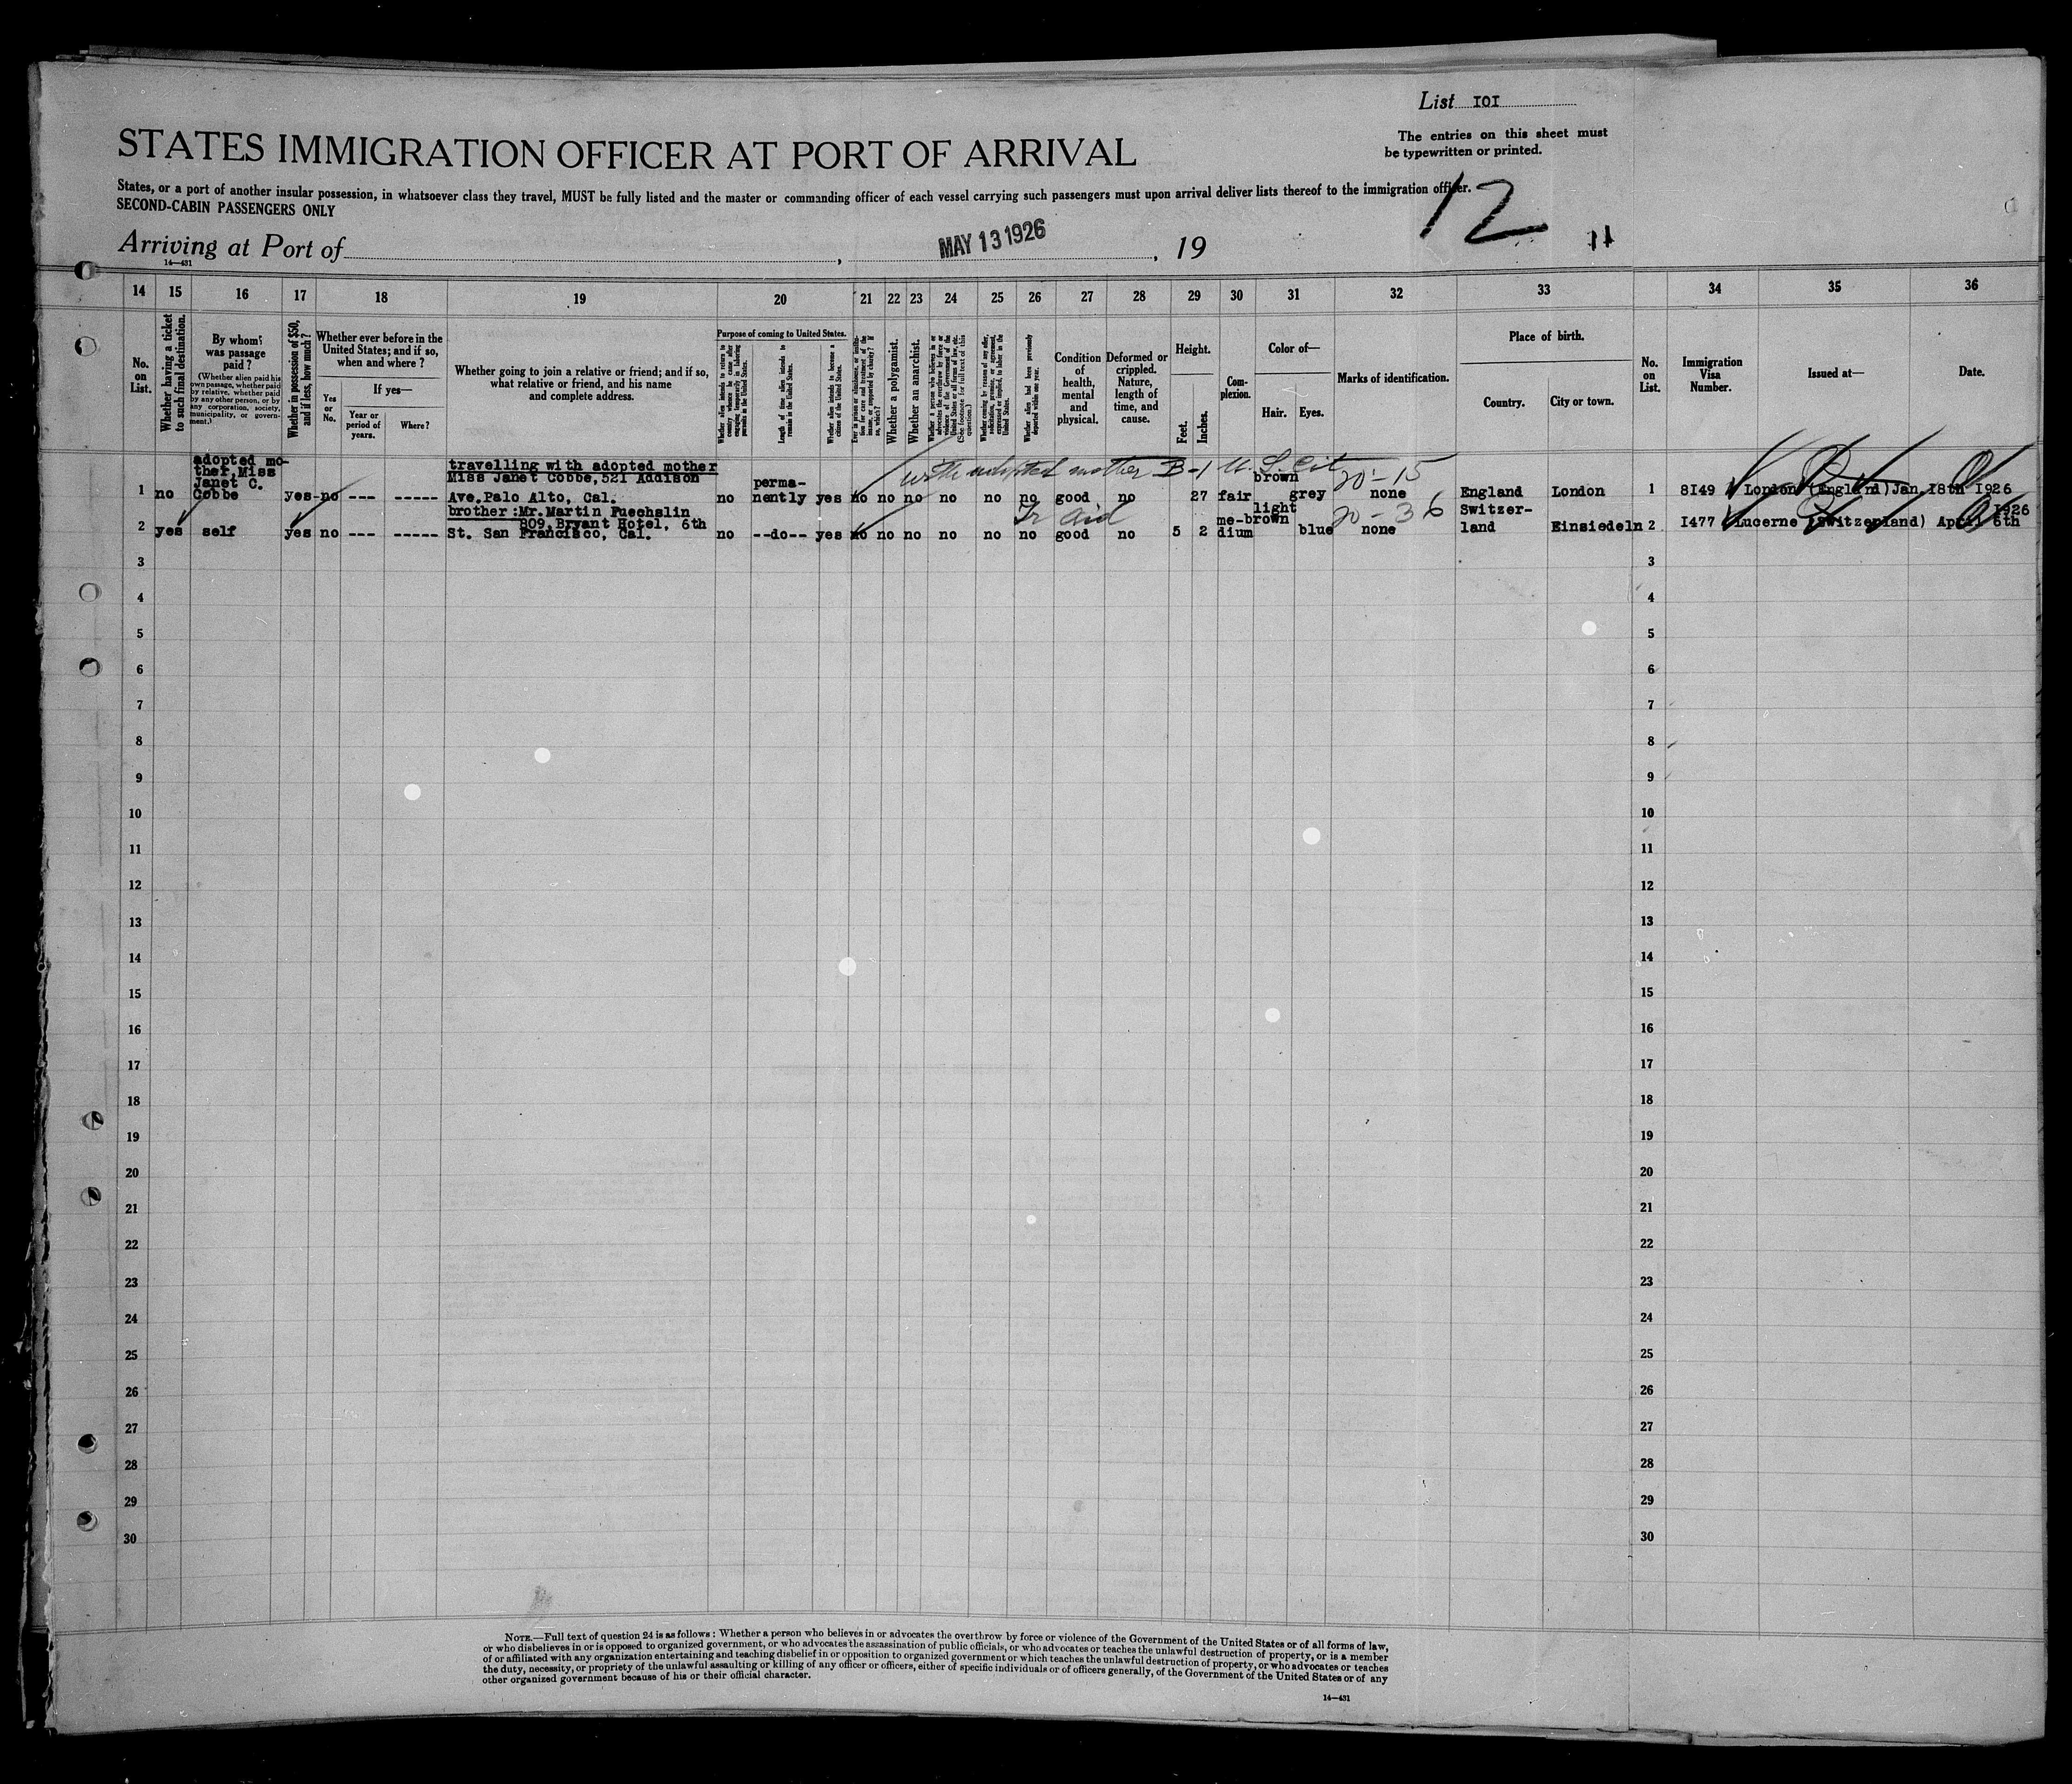 List IOI
The entries on this sheet must
be typewritten or printed.
STATES IMMIGRATION OFFICER AT PORT OF ARRIVAL
States, or a port of another insular possession, in whatsoever class they travel, MUST be fully listed and the master or commanding officer of each vessel carrying such passengers must upon arrival deliver lists thereof to the immigration officer.
SECOND-CABIN PASSENGERS ONLY
12
11
Arriving at Port of , MAY 13 1926 , 19
14—431
14 15 16 17 18 19 20 21 22 23 24 25 26 27 28 29 30 31 32 33 34 35 36
No. on List.
Whether having a ticket to such final destination.
By whom was passage paid?
(Whether alien paid his own passage, whether paid by relative, whether paid by any other person, or by any corporation, society, municipality, or government.)
Whether in possession of $50, and if less, how much?
Whether ever before in the United States; and if so, when and where?
If yes—
Yes or No.
Year or period of years.
Where?
Whether going to join a relative or friend; and if so, what relative or friend, and his name and complete address.
Purpose of coming to United States.
Length of time alien intends to remain in the United States.
Whether alien intends to become a citizen of the United States.
Whether a polygamist.
Whether an anarchist.
Whether alien had been previously deported within one year.
Condition of health, mental and physical.
Deformed or crippled. Nature, length of time, and cause.
Height.
Feet.
Inches.
Complexion.
Color of—
Hair.
Eyes.
Marks of identification.
Place of birth.
Country.
City or town.
No. on List.
Immigration Visa Number.
Issued at—
Date.
with adopted mother B-1 U.S. Cit
20-15
1 no adopted mo-ther, Miss Janet C. Cobbe yes-no --- ----- travelling with adopted mother
Miss Janet Cobbe, 521 Addison
Ave. Palo Alto, Cal. no perma-nently yes no no no no no no good no 27 fair brown grey none England London 1 8I49 London (England) Jan. I8th I926
Tr aid
20-36
2 yes self yes no --- ----- brother: Mr. Martin Fuechslin
809. Bryant Hotel, 6th
St. San Francisco, Cal. no --do-- yes no no no no no no good no 5 2 me-dium light brown blue none Switzer-land Einsiedeln 2 I477 Lucerne (Switzerland) April 6th I926
3 3
4 4
5 5
6 6
7 7
8 8
9 9
10 10
11 11
12 12
13 13
14 14
15 15
16 16
17 17
18 18
19 19
20 20
21 21
22 22
23 23
24 24
25 25
26 26
27 27
28 28
29 29
30 30
NOTE.—Full text of question 24 is as follows: Whether a person who believes in or advocates the overthrow by force or violence of the Government of the United States or of all forms of law,
or who disbelieves in or is opposed to organized government, or who advocates the assassination of public officials, or who advocates or teaches the unlawful destruction of property, or is a member
of or affiliated with any organization entertaining and teaching disbelief in or opposition to organized government or which teaches the unlawful destruction of property, or who advocates or teaches
the duty, necessity, or propriety of the unlawful assaulting or killing of any officer or officers, either of specific individuals or of officers generally, of the Government of the United States or of any
other organized government because of his or their official character.
14—431